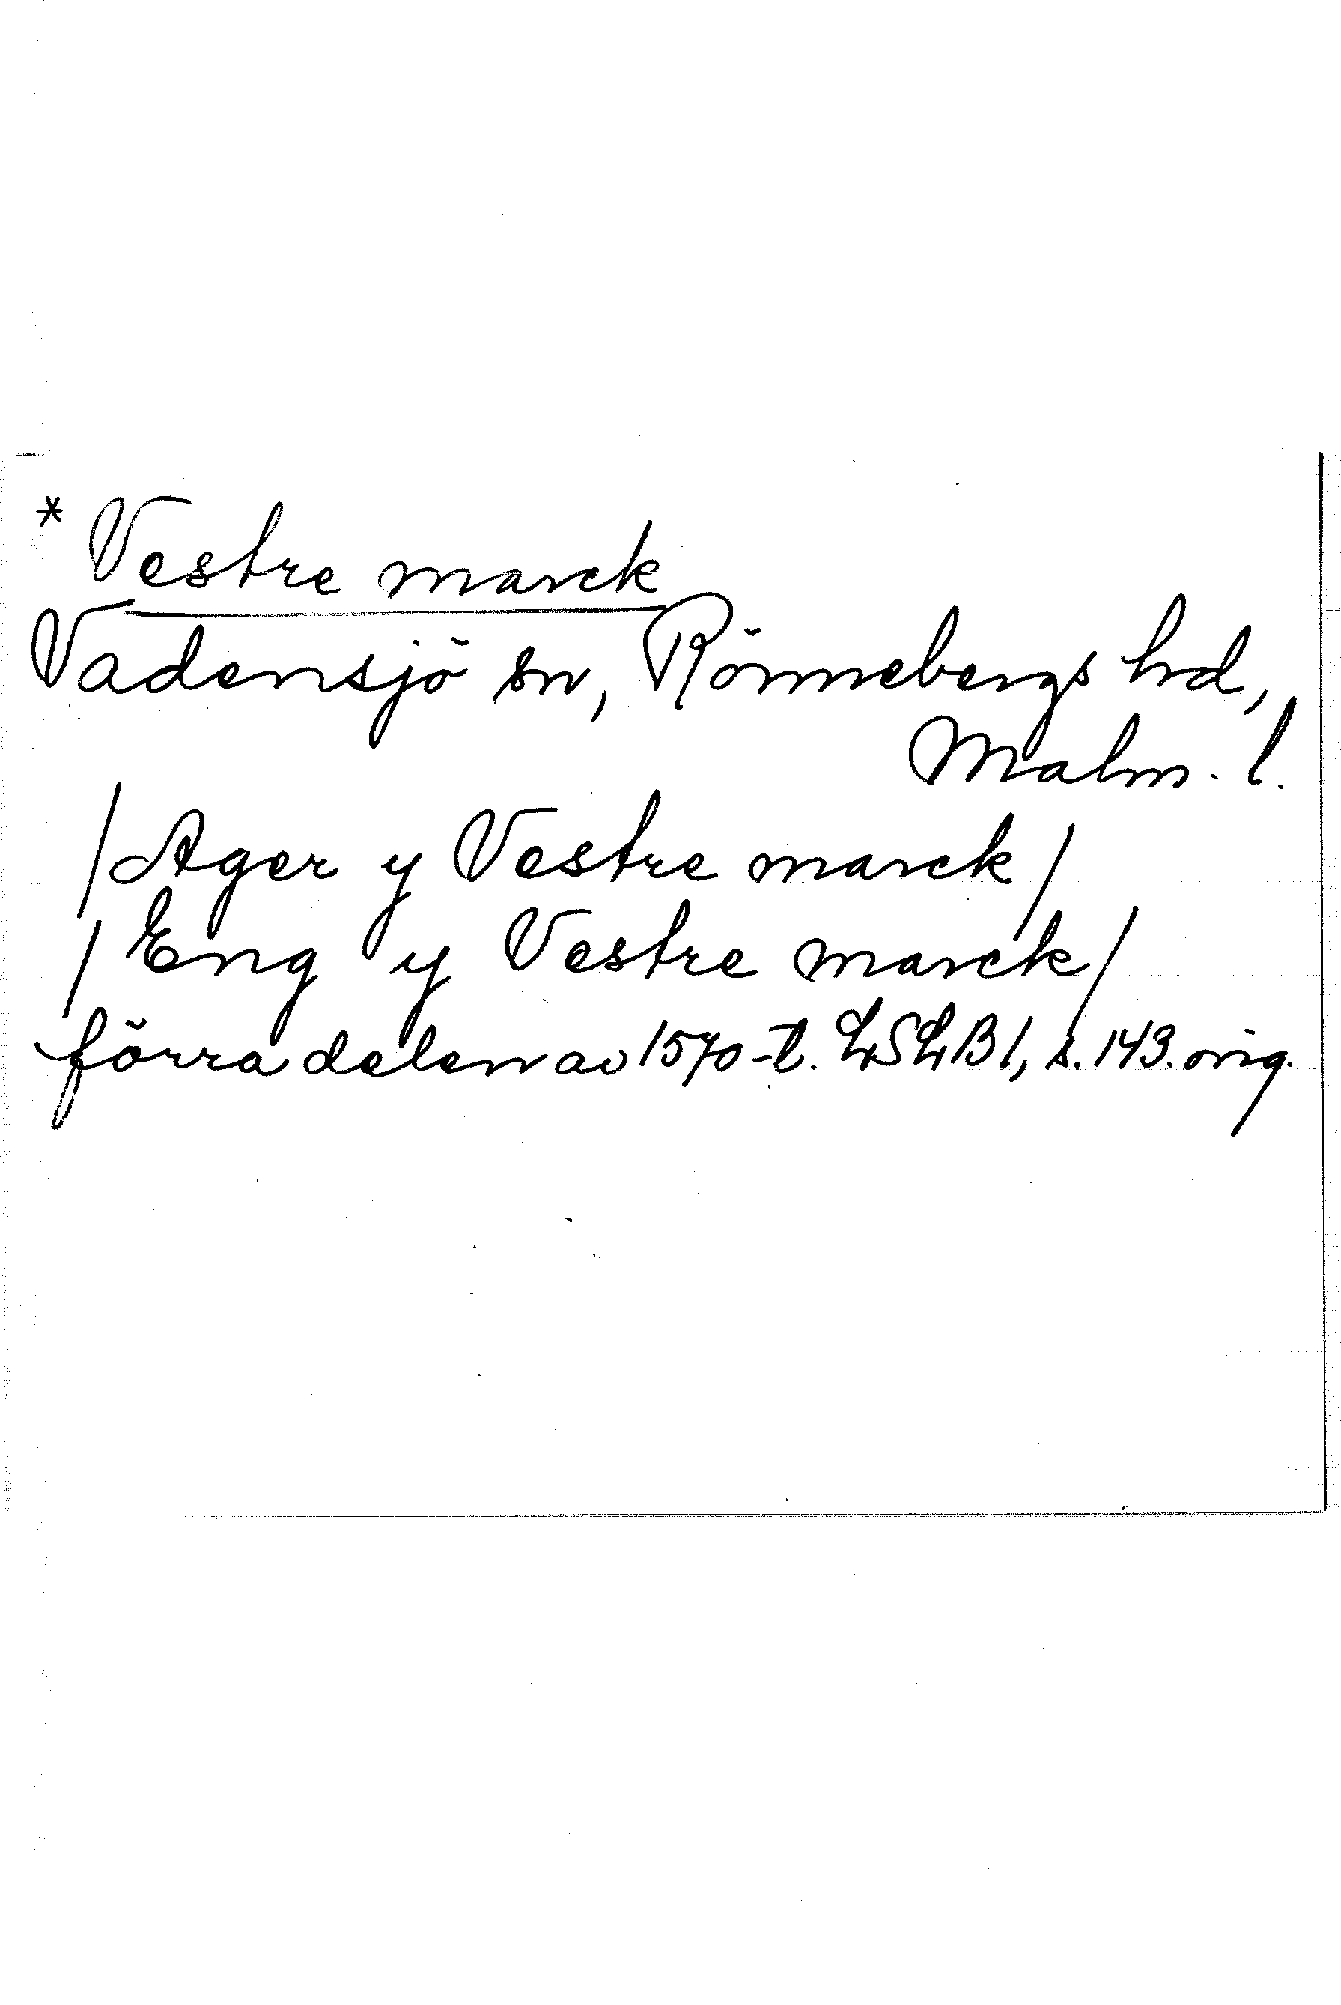 * Vestre marck
Vadensjö sn, Rönnebergs hd,
Malm. l.
/Ager y Vestre marck/
/Eng y Vestre marck/
förra delen av 1570-t. LSLB 1, s. 143. orig.